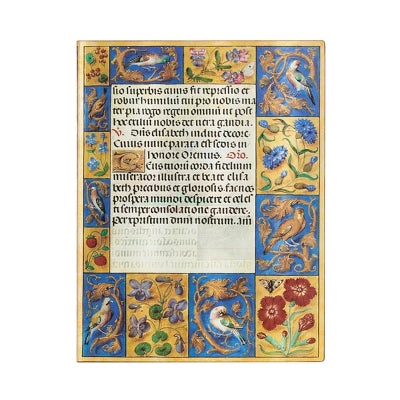 sio superbis cuius fit repressio et
robur humilium cui pro nobis ma
ter pia rego regem omnium ut post
hoc exilium nobis det vera gaudia.
V. Diffusa est
Cuius nunc parata est sedis in
honore Oremus. Oro.
corda fidelium
miserator illustra et beate elisa
beth precibus et gloriosis. fac nos
prospera mundi despicere et celes
ti semper consolatione gaudere.
per xpristum dnm nostrum. am